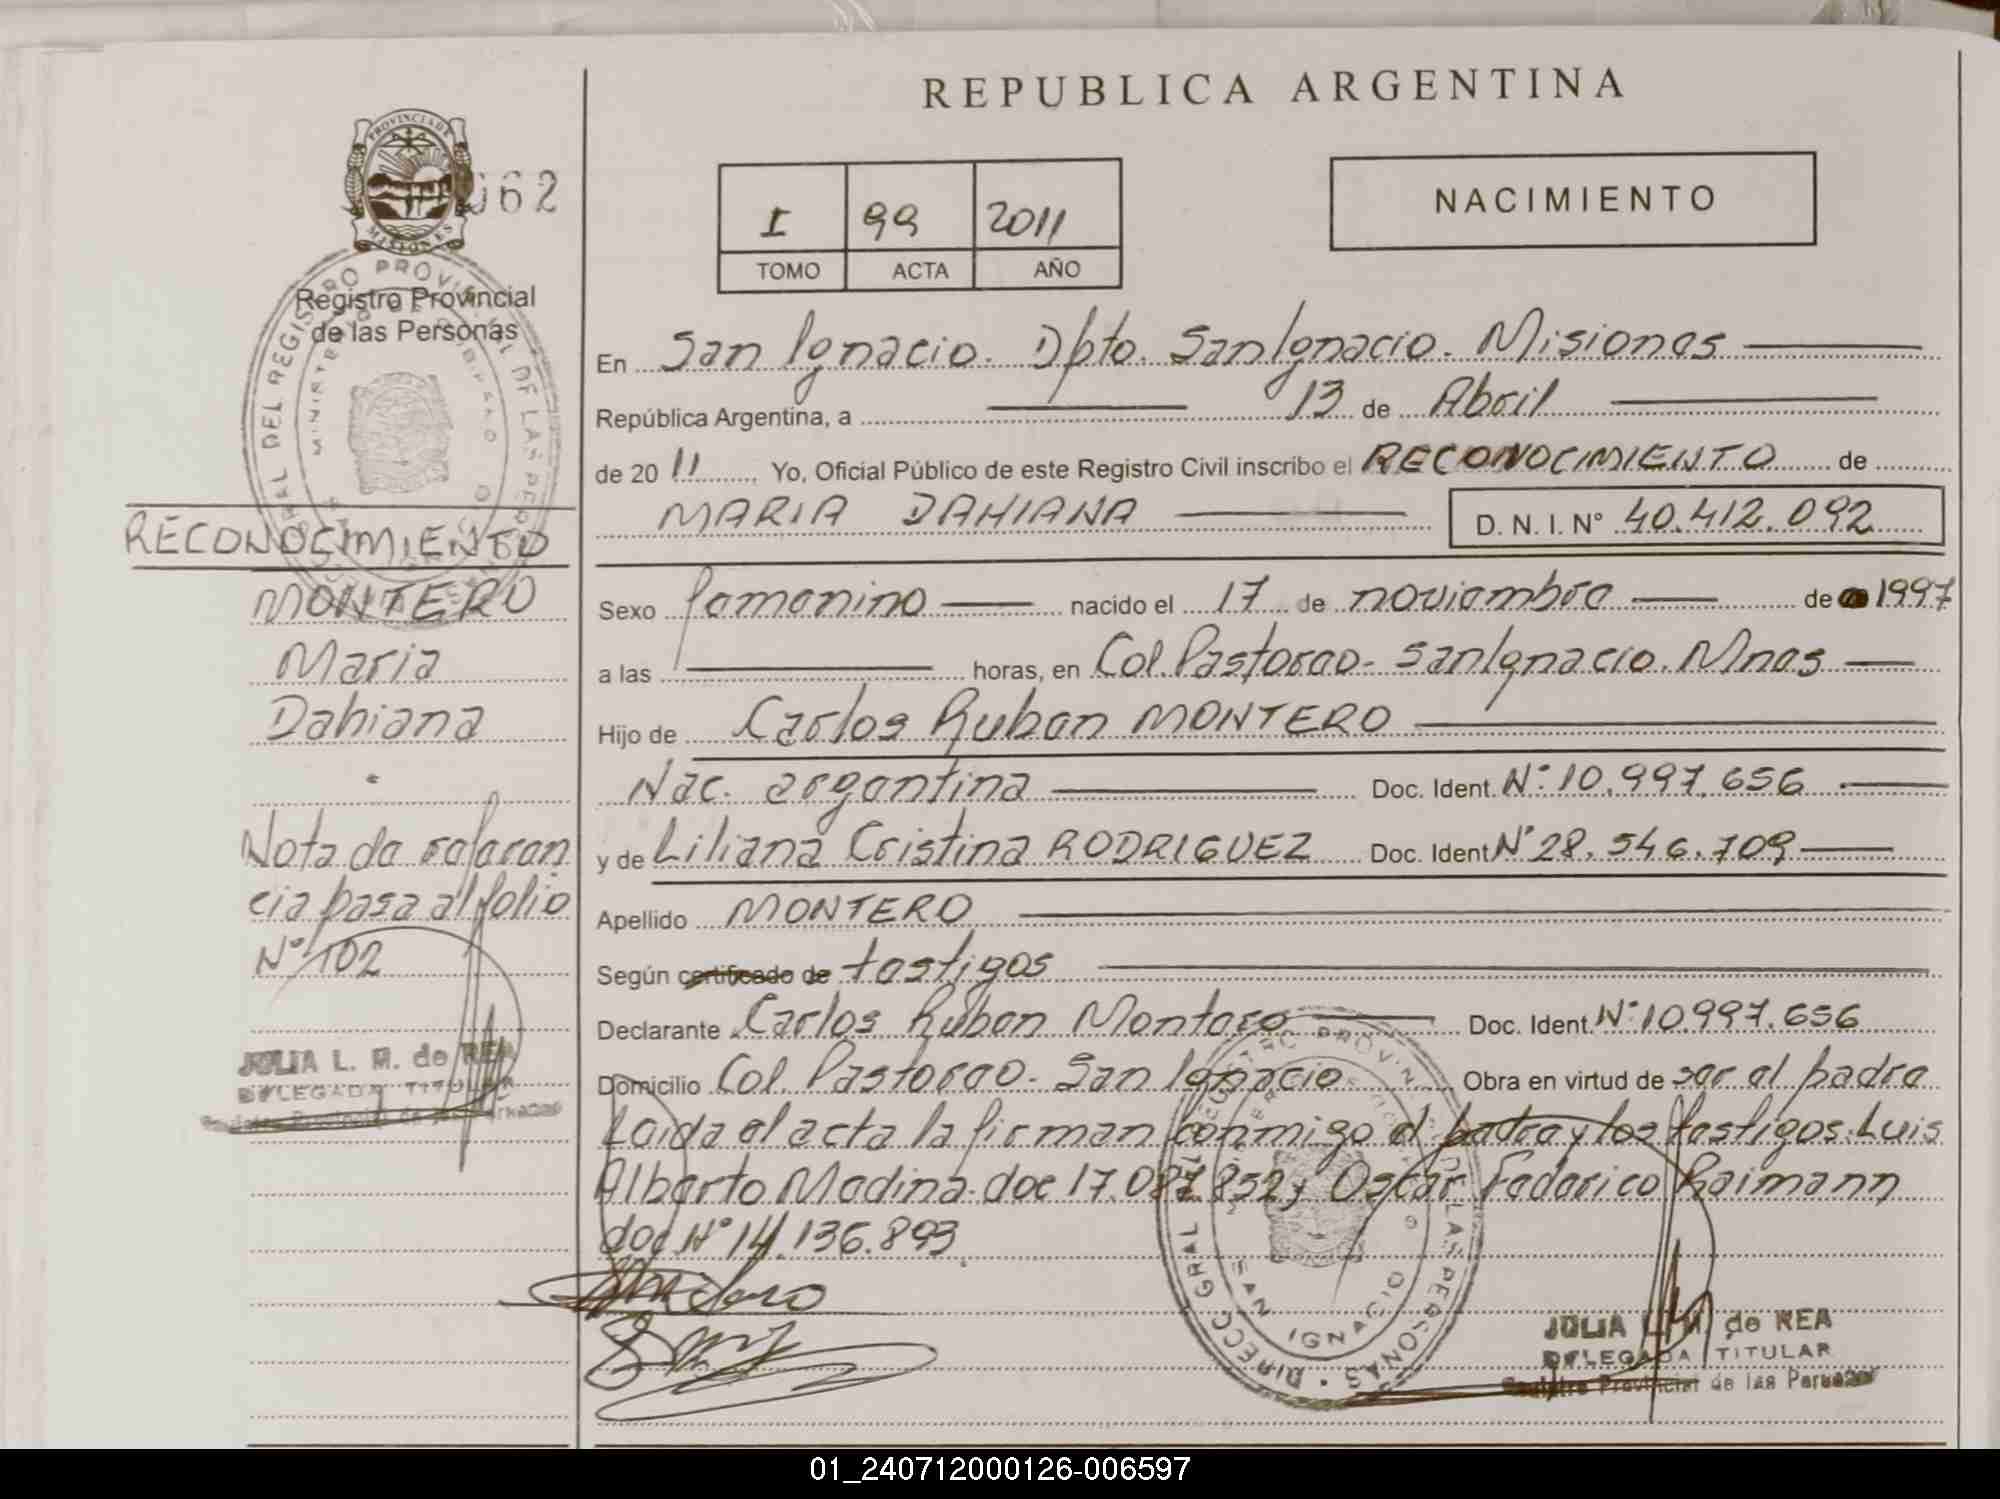 REPUBLICA ARGENTINA
PROVINCIA DE
MISIONES
062
Registro Provincial
de las Personas
I 99 2011
TOMO ACTA AÑO
NACIMIENTO
En San Ignacio. Dpto. San Ignacio. Misiones
República Argentina, a 13 de Abril
de 20 11 Yo, Oficial Público de este Registro Civil inscribo el RECONOCIMIENTO de
MARIA DAHIANA D. N. I. Nº 40.412.092
Sexo femenino nacido el 17 de noviembre de 1997
a las horas, en Col. Pastoreo - San Ignacio. Mnes
Hijo de Carlos Ruben MONTERO
Nac. argentina Doc. Ident. Nº 10.997.656
y de Liliana Cristina RODRIGUEZ Doc. Ident Nº 28.546.709
Apellido MONTERO
Según certificado de testigos
Declarante Carlos Ruben Montero Doc. Ident. Nº 10.997.656
Domicilio Col. Pastoreo - San Ignacio Obra en virtud de ser el padre
Leida el acta la firman conmigo el padre y los testigos. Luis
Alberto Medina. doc 17.087.852 y Oscar Federico Reimann
doc Nº 14.136.893
RECONOCIMIENTO
MONTERO
Maria
Dahiana
Nota de referen
cia pasa al folio
Nº 102
JULIA L. M. de REA
DELEGADA TITULAR
Registro Provincial de las Personas
DIRECC GRAL DEL REGISTRO PROVINCIAL DE LAS PERSONAS
SAN IGNACIO
JULIA L. M. de REA
DELEGADA TITULAR
Registro Provincial de las Personas
01_240712000126-006597